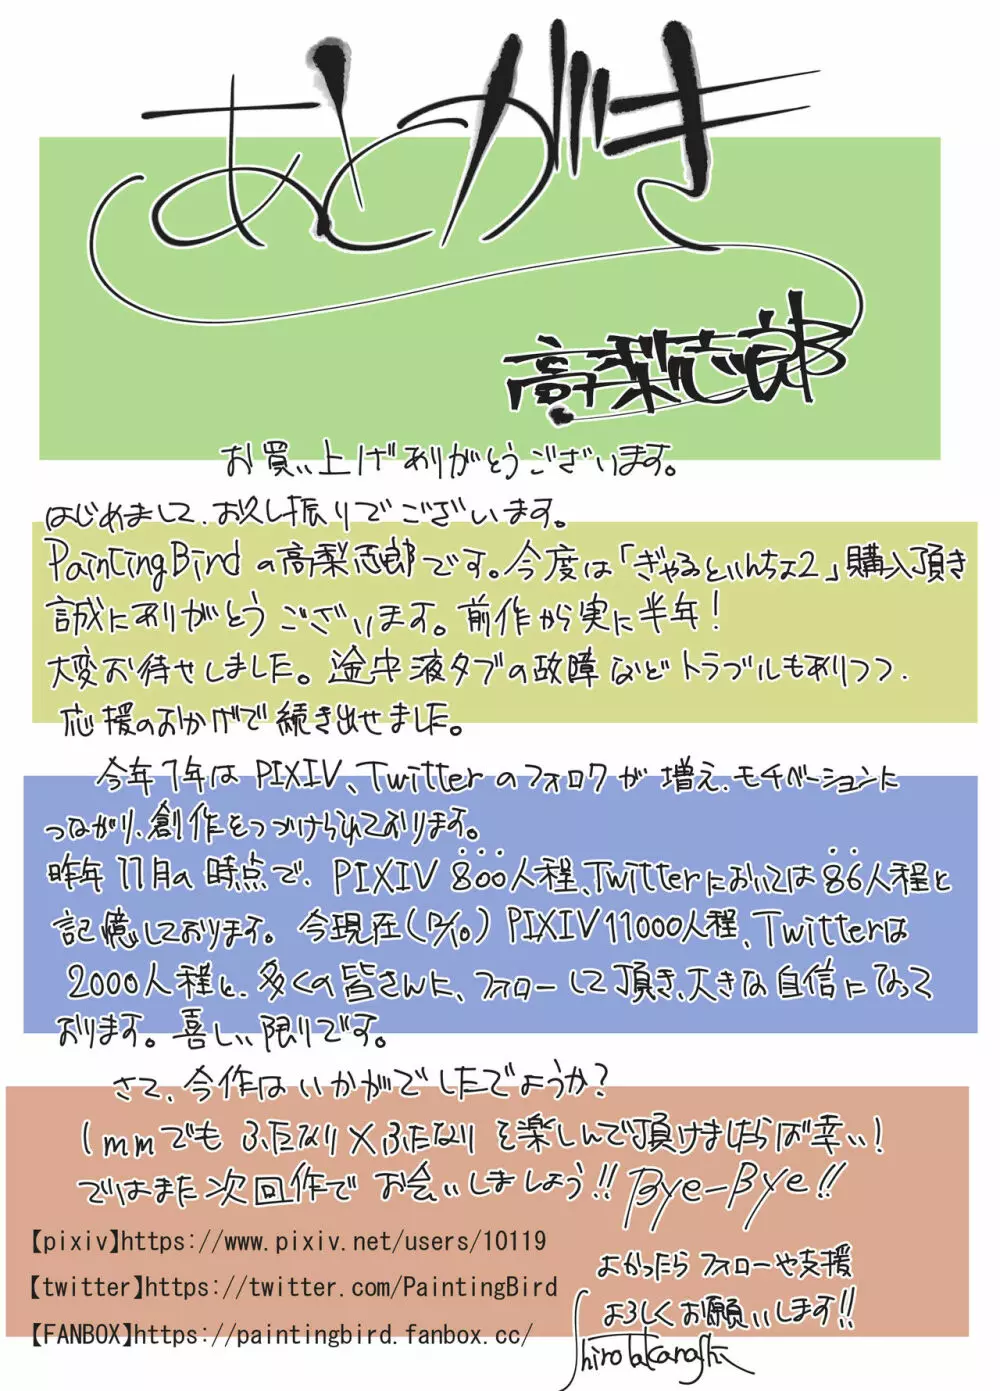 あとがき
高梨志郎
お買い上げありがとうございます。
はじめまして、お久し振りでございます。
PaintingBirdの高梨志郎です。今度は「ぎゃるといんちょ2」購入頂き
誠にありがとうございます。前作から実に半年!
大変お待せしました。途中液タブの故障などトラブルもありつつ、
応援のおかげで続き出せました。
今年1年はPIXIV、Twitterのフォロワが増え、モチベーションに
つながり、創作をつづけられております。
昨年11月の時点で、PIXIV 800人程、Twitterにおいては86人程と
記憶しております。今現在(12/10)PIXIV11000人程、Twitterは
2000人程と、多くの皆さんに、フォローして頂き、大きな自信になって
おります。喜しい限りです。
さて、今作はいかがでしたでしょうか?
1mmでもふたなり×ふたなりを楽しんで頂けましたらば幸い!
ではまた次回作でお会いしましょう!!Bye-Bye!!
【pixiv】https://www.pixiv.net/users/10119
【twitter】https://twitter.com/PaintingBird
【FANBOX】https://paintingbird.fanbox.cc/
よかったらフォローや支援
よろしくお願いします!!
Shiro Takanashi